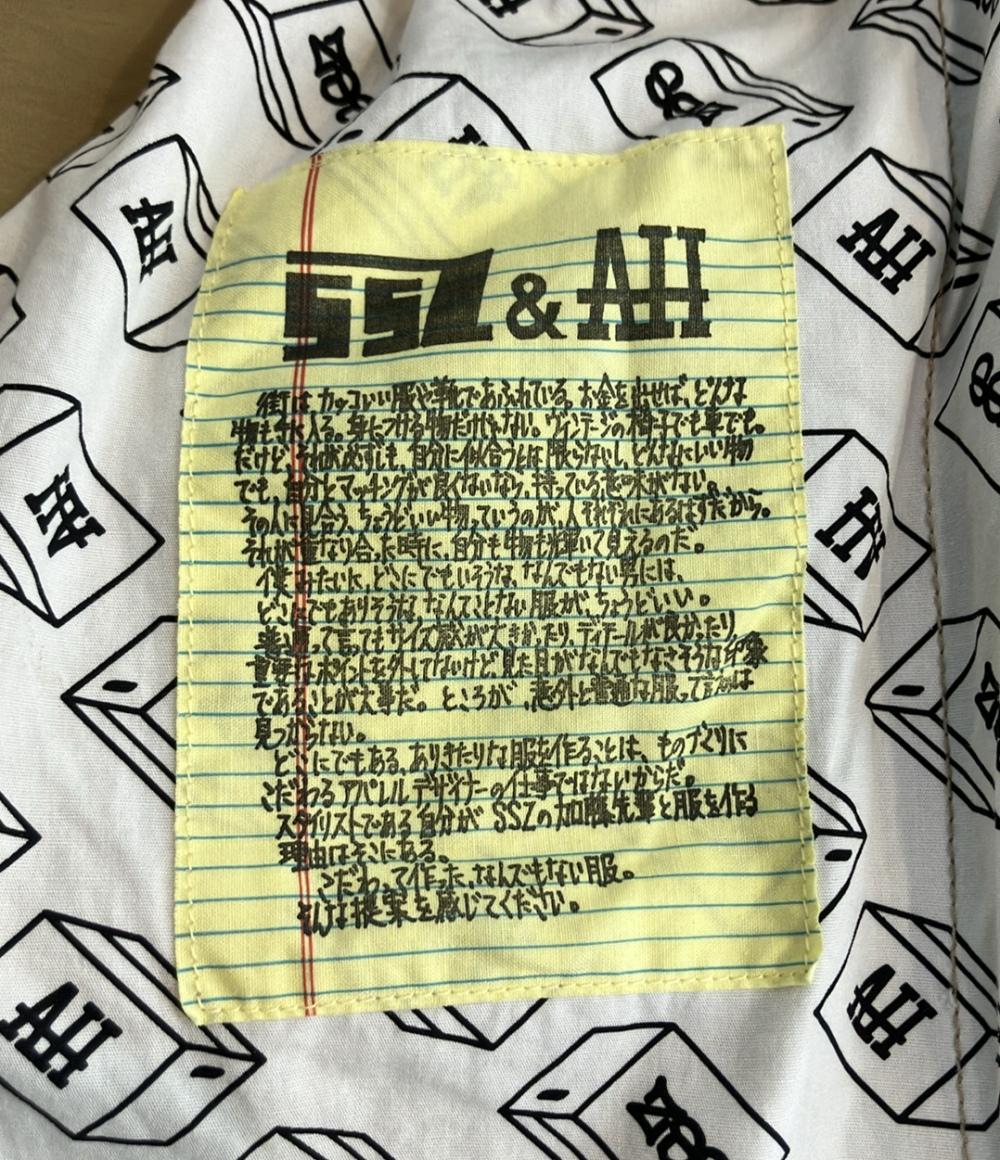 SSZ & AH
街はカッコいい服や靴であふれている。お金を出せば、どんな
物も手に入る。身につける物だけじゃない。ヴィンテージの椅子でも車でも。
だけど、それが必ずしも、自分に似合うとは限らないし、どんなにいい物
でも、自分とマッチングが良くないなら、持っている意味がない。
その人に見合う、ちょうどいい物っていうのが、人それぞれにあるはずだから。
それが重なり合った時に、自分も物も輝いて見えるのだ。
僕みたいに、どこにでもいそうな、なんでもない男には、
どこにでもありそうな、なんてことない服が、ちょうどいい。
普通って言ってもサイズ感が大きかったり、ディテールが良かったり
重要なポイントを外してないけど、見た目がなんでもなさそうな印象
であることが大事だ。ところが、意外と普通な服って言うのは
見つからない。
どこにでもある、ありきたりな服を作ることは、ものづくりに
こだわるアパレルデザイナーの仕事ではないからだ。
スタイリストである自分が SSZの加藤先輩と服を作る
理由はそこにある。
こだわって作った、なんでもない服。
そんな提案を感じてください。
AH
AH
AH
AH
AH
AH
SSZ
SSZ
SSZ